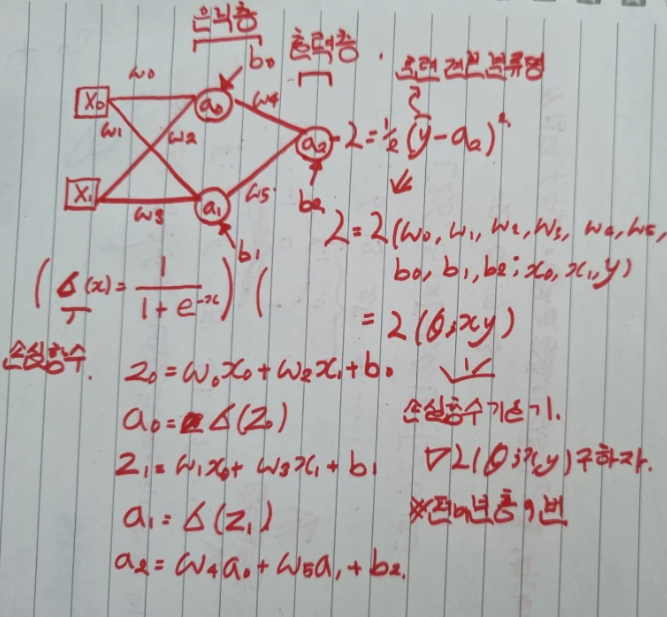 은닉층
출력층
b₀
w₀
w₄
X₀
a₀
w₁
w₂
a₂
L = ½(y - a₂)²
X₁
a₁
w₃
w₅
b₂
b₁
L = L(w₀, w₁, w₂, w₃, w₄, w₅,
b₀, b₁, b₂; x₀, x₁, y)
(σ(x) = 1 / (1 + e⁻ˣ)) (
= L(θ; x, y)
손실함수.
z₀ = w₀x₀ + w₂x₁ + b₀
손실함수 기울기.
a₀ = σ(z₀)
z₁ = w₁x₀ + w₃x₁ + b₁
∇L(θ; x, y) 구하자.
a₁ = σ(z₁)
※편미분 총 9번
a₂ = w₄a₀ + w₅a₁ + b₂.